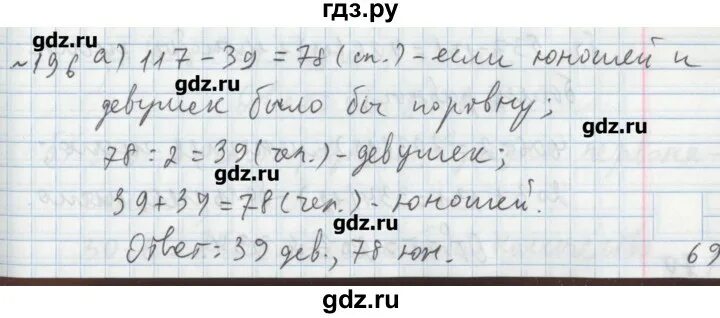 гдз.ру
№196 а) 117 - 39 = 78 (сп.) - если юношей и
gdz.ru
девушек было бы поровну;
gdz.ru
78 : 2 = 39 (чел.) - девушек;
gdz.ru
39 + 39 = 78 (чел.) - юношей.
Ответ: 39 дев., 78 юн.
69
gdz.ru
gdz.ru